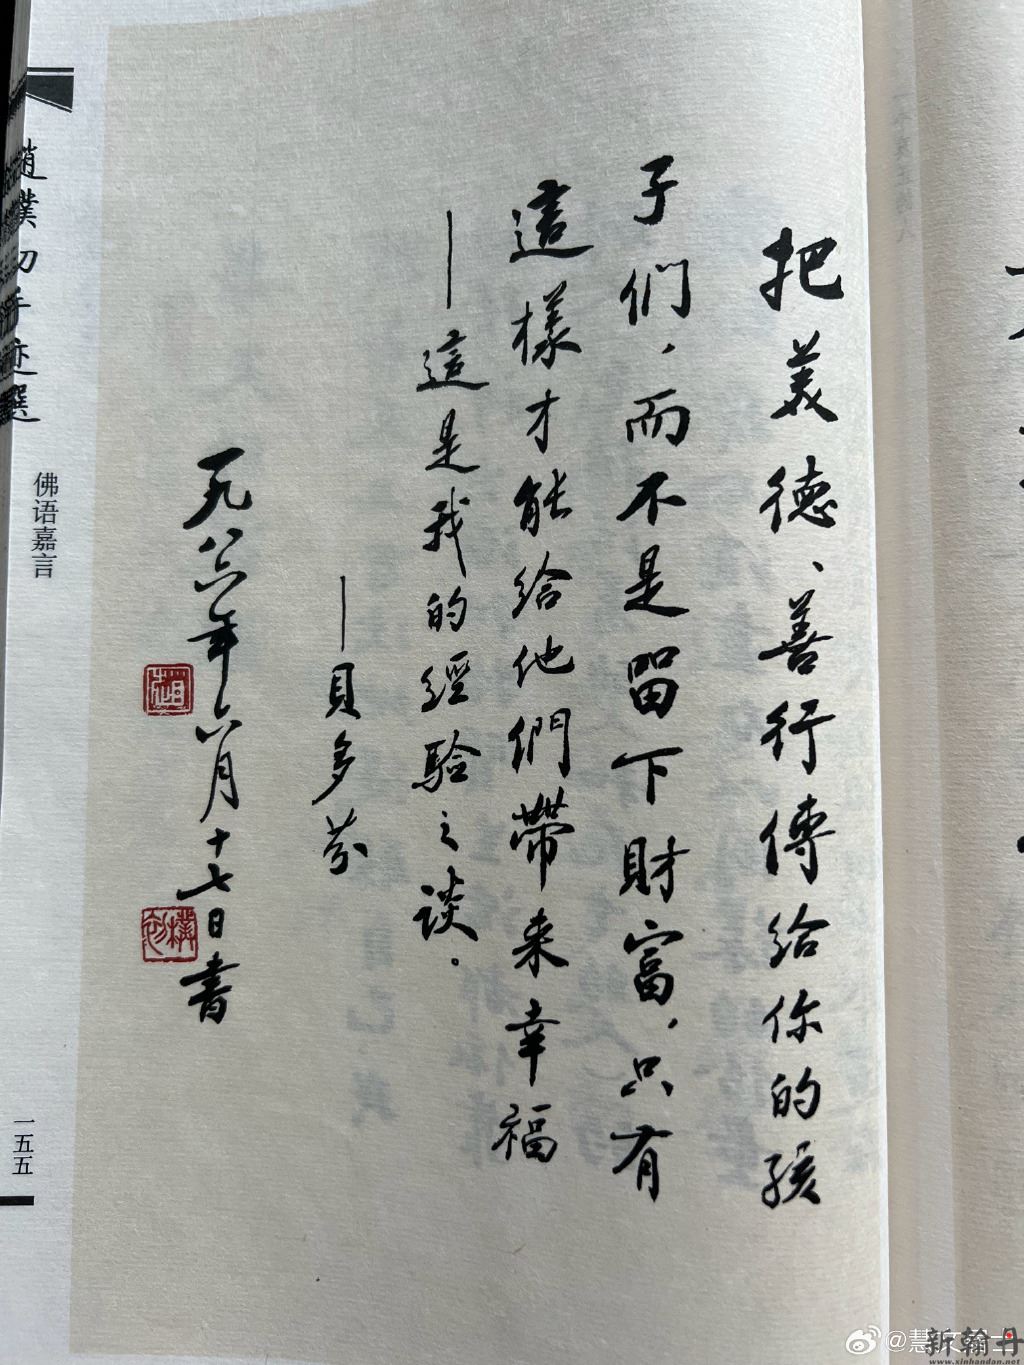 把美德、善行傳給你的孩
子们，而不是留下財富，只有
這樣才能給他們帶来幸福
——這是我的經驗之谈。
——貝多芬
一九八六年六月十七日書
趙
樸初
趙樸初手迹選
佛语嘉言
一五五
新翰丹
www.xinhandan.net